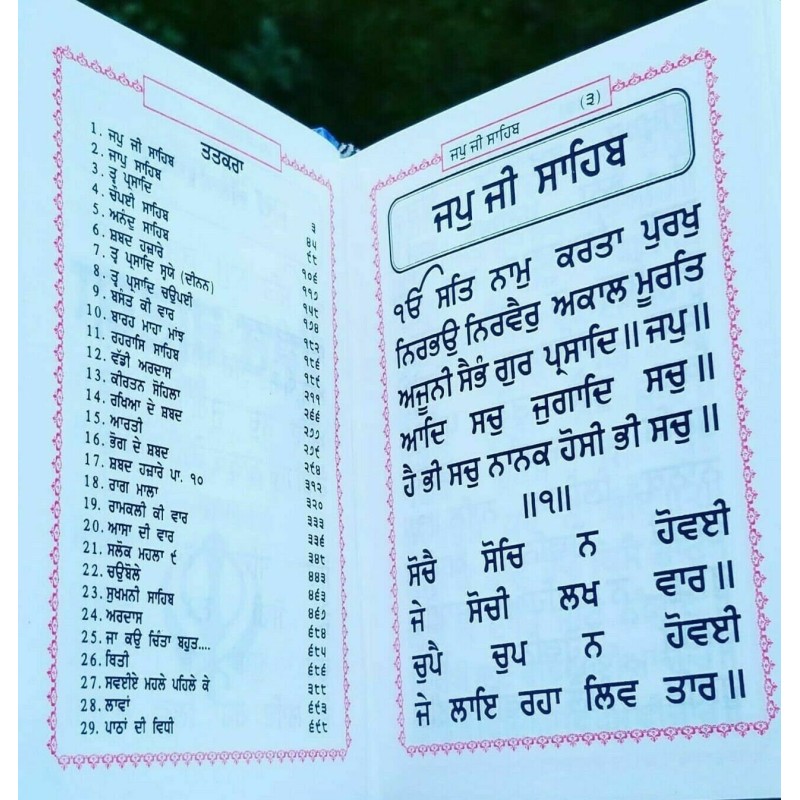 ਤਤਕਰਾ
1. ਜਪੁ ਜੀ ਸਾਹਿਬ ੩
2. ਜਾਪੁ ਸਾਹਿਬ ੪੫
3. ਤ੍ਵ ਪ੍ਰਸਾਦਿ ੯੮
4. ਚੌਪਈ ਸਾਹਿਬ ੧੦੬
5. ਅਨੰਦੁ ਸਾਹਿਬ ੧੧੭
6. ਸ਼ਬਦ ਹਜ਼ਾਰੇ ੧੫੮
7. ਤ੍ਵ ਪ੍ਰਸਾਦਿ ਸ੍ਵਯੇ (ਦੀਨਨ) ੧੭੪
8. ਤ੍ਵ ਪ੍ਰਸਾਦਿ ਚਉਪਈ ੧੮੨
9. ਬਸੰਤ ਕੀ ਵਾਰ ੧੮੬
10. ਬਾਰਹ ਮਾਹਾ ਮਾਂਝ ੧੮੯
11. ਰਹਰਾਸਿ ਸਾਹਿਬ ੨੧੧
12. ਵੱਡੀ ਅਰਦਾਸ ੨੬੬
13. ਕੀਰਤਨ ਸੋਹਿਲਾ ੨੭੭
14. ਰਖਿਆ ਦੇ ਸ਼ਬਦ ੨੭੯
15. ਆਰਤੀ ੨੯੪
16. ਭੋਗ ਦੇ ਸ਼ਬਦ ੩੧੨
17. ਸ਼ਬਦ ਹਜ਼ਾਰੇ ਪਾ. ੧੦ ੩੨੦
18. ਰਾਗ ਮਾਲਾ ੩੩੩
19. ਰਾਮਕਲੀ ਕੀ ਵਾਰ ੩੩੬
20. ਆਸਾ ਦੀ ਵਾਰ ੩੪੮
21. ਸਲੋਕ ਮਹਲਾ ੯ ੪੪੩
22. ਚਉਬੋਲੇ ੪੬੩
23. ਸੁਖਮਨੀ ਸਾਹਿਬ ੪੬੭
24. ਅਰਦਾਸ ੬੮੪
25. ਜਾ ਕਉ ਚਿੰਤਾ ਬਹੁਤ.... ੬੮੫
26. ਥਿਤੀ ੬੮੬
27. ਸਵਈਏ ਮਹਲੇ ਪਹਿਲੇ ਕੇ ੩੮੮
28. ਲਾਵਾਂ ੬੯੩
29. ਪਾਠਾਂ ਦੀ ਵਿਧੀ ੬੯੮
ਜਪੁ ਜੀ ਸਾਹਿਬ (੩)
ਜਪੁ ਜੀ ਸਾਹਿਬ
ੴ ਸਤਿ ਨਾਮੁ ਕਰਤਾ ਪੁਰਖੁ
ਨਿਰਭਉ ਨਿਰਵੈਰੁ ਅਕਾਲ ਮੂਰਤਿ
ਅਜੂਨੀ ਸੈਭੰ ਗੁਰ ਪ੍ਰਸਾਦਿ॥ ਜਪੁ॥
ਆਦਿ ਸਚੁ ਜੁਗਾਦਿ ਸਚੁ॥
ਹੈ ਭੀ ਸਚੁ ਨਾਨਕ ਹੋਸੀ ਭੀ ਸਚੁ॥
॥੧॥
ਸੋਚੈ ਸੋਚਿ ਨ ਹੋਵਈ
ਜੇ ਸੋਚੀ ਲਖ ਵਾਰ॥
ਚੁਪੈ ਚੁਪ ਨ ਹੋਵਈ
ਜੇ ਲਾਇ ਰਹਾ ਲਿਵ ਤਾਰ॥